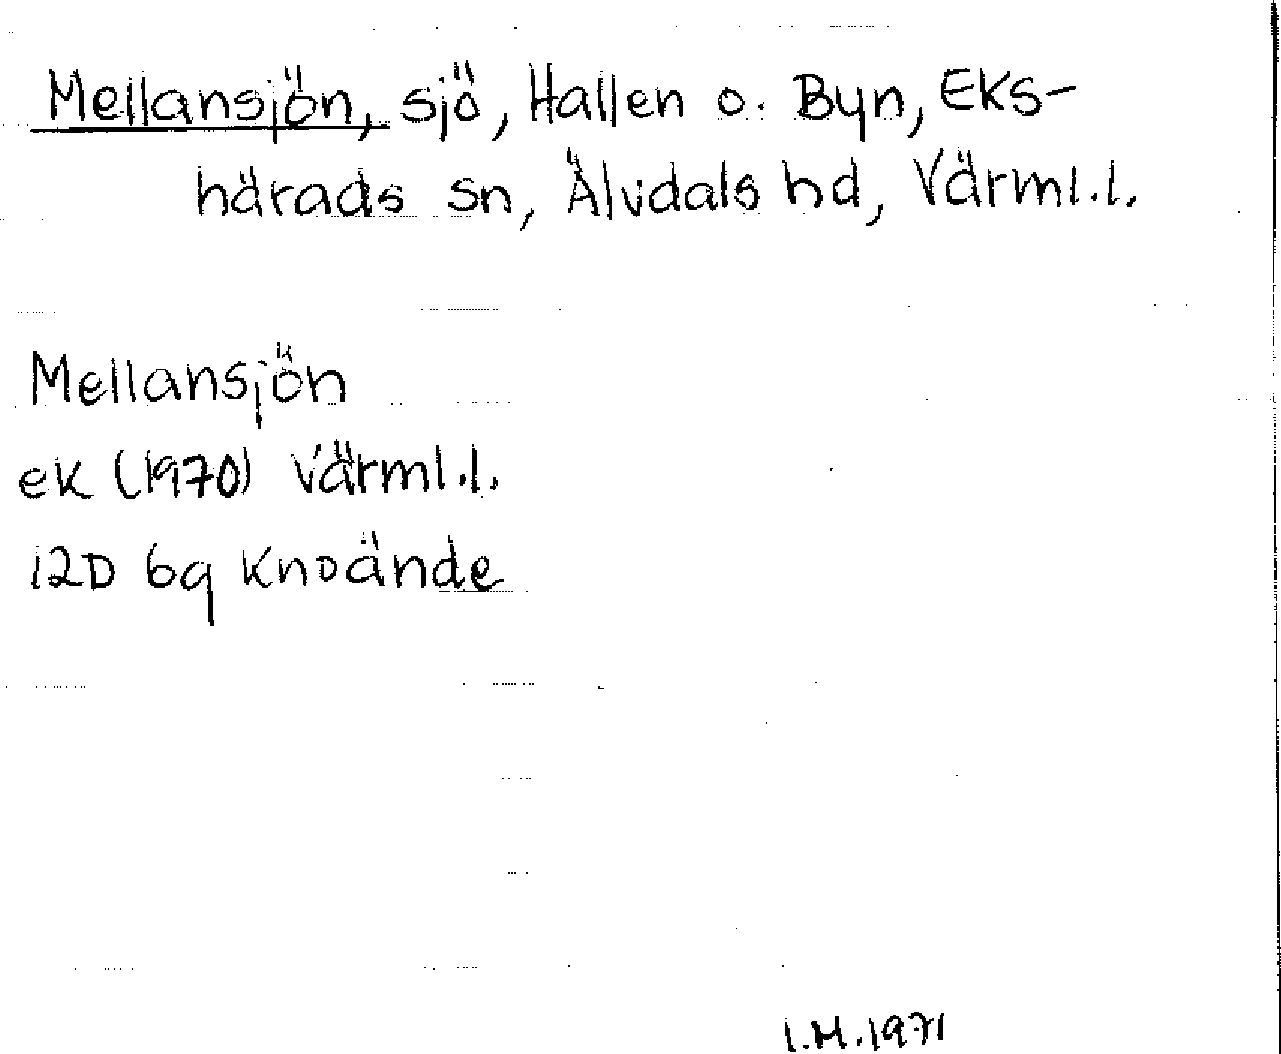 Mellansjön, sjö, Hallen o. Byn, Eks-
härads sn, Älvdals hd, Värml.l.
Mellansjön
ek (1970) Värml.l.
12D 6g Knoände
I.M.1971